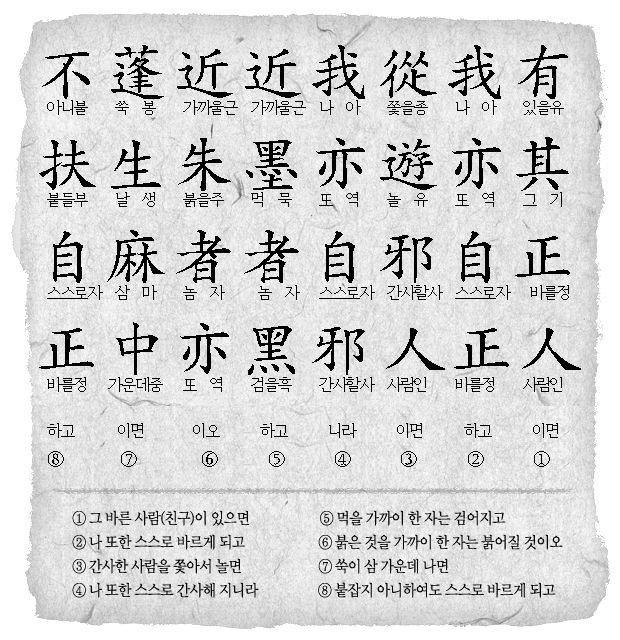 有 있을유 其 그 기 正 바를정 人 사람인 이면 ①
我 나 아 亦 또 역 自 스스로자 正 바를정 하고 ②
從 쫓을종 遊 놀 유 邪 간사할사 人 사람인 이면 ③
我 나 아 亦 또 역 自 스스로자 邪 간사할사 니라 ④
近 가까울근 墨 먹 묵 者 놈 자 黑 검을흑 하고 ⑤
近 가까울근 朱 붉을주 者 놈 자 亦 또 역 이오 ⑥
蓬 쑥 봉 生 날 생 麻 삼 마 中 가운데중 이면 ⑦
不 아니불 扶 붙들부 自 스스로자 正 바를정 하고 ⑧
① 그 바른 사람(친구)이 있으면
② 나 또한 스스로 바르게 되고
③ 간사한 사람을 쫓아서 놀면
④ 나 또한 스스로 간사해 지니라
⑤ 먹을 가까이 한 자는 검어지고
⑥ 붉은 것을 가까이 한 자는 붉어질 것이오
⑦ 쑥이 삼 가운데 나면
⑧ 붙잡지 아니하여도 스스로 바르게 되고